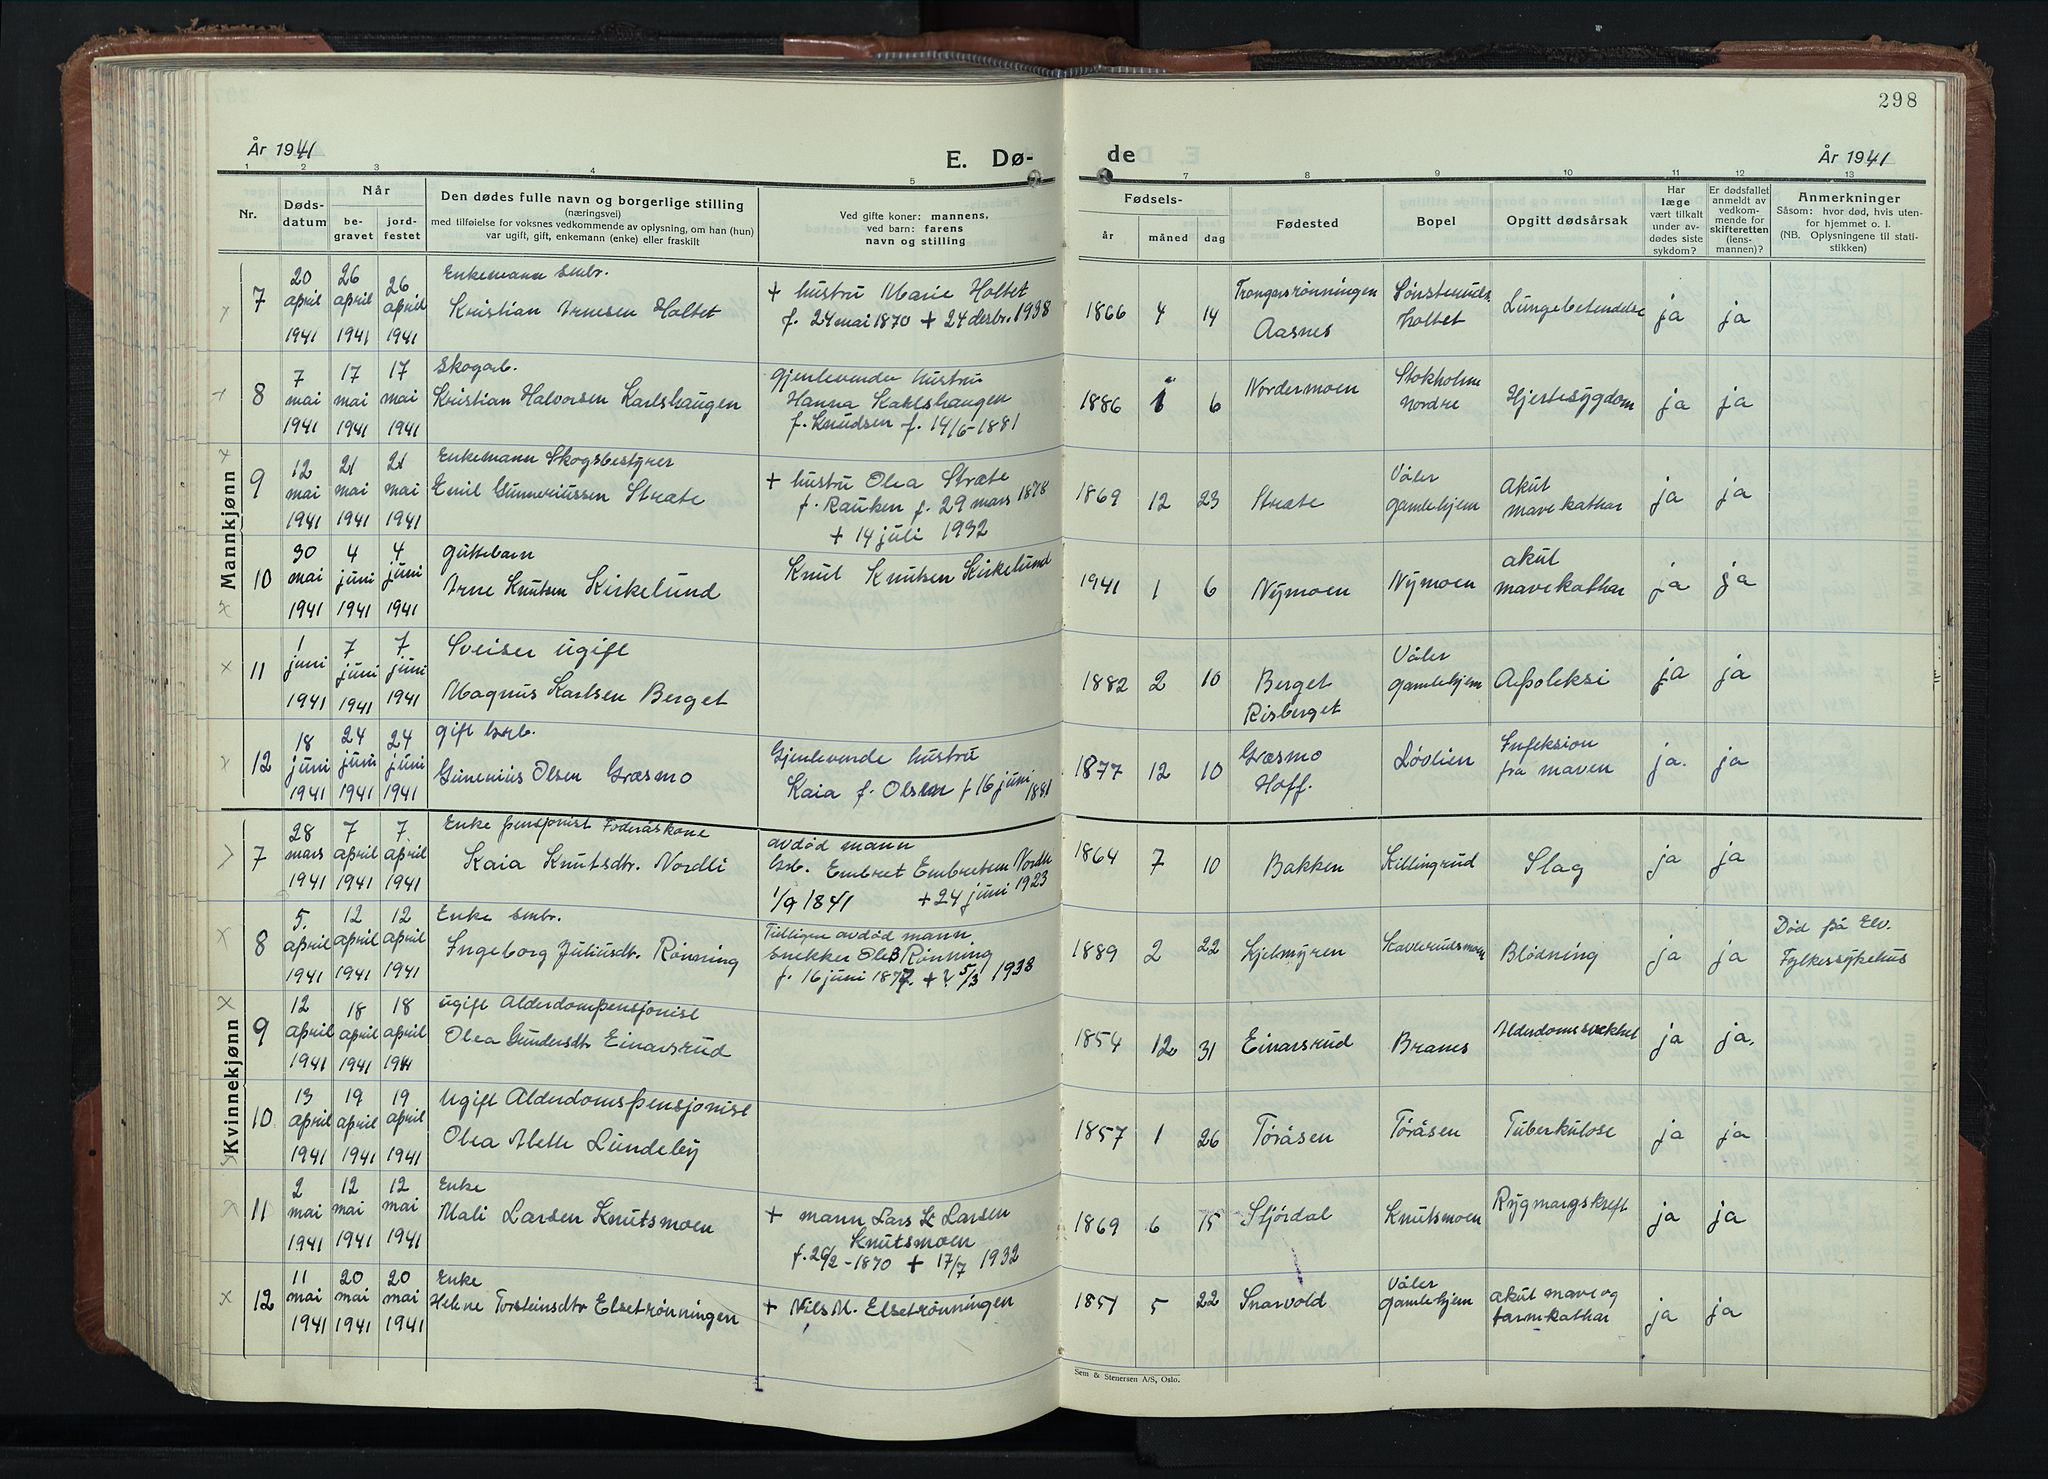 298
År 1941
E. Dø-
de
År 1941
1 2 3 4 5 7 8 9 10 11 12 13
Nr.
Døds-
datum
Når
be-
gravet
jord-
festet
Den dødes fulle navn og borgerlige stilling
(næringsvei)
med tilføielse for voksnes vedkommende av oplysning, om han (hun)
var ugift, gift, enkemann (enke) eller fraskilt
Ved gifte koner: mannens,
ved barn: farens
navn og stilling
Fødsels-
år måned dag
Fødested
Bopel
Opgitt dødsårsak
Har
læge
vært tilkalt
under av-
dødes siste
sykdom?
Er dødsfallet
anmeldt av
vedkom-
mende for
skifteretten
(lens-
mannen)?
Anmerkninger
Såsom: hvor død, hvis uten-
for hjemmet o. l.
(NB. Oplysningene til stati-
stikken)
Mannkjønn
7
20 april 1941
26 april 1941
26 april 1941
Enkemann smbr.
Kristian Arnesen Holtet
+ hustru Marie Holtet
f. 24 mai 1870 + 24 desbr. 1938
1866 4 14
Trongarsrønningen
Aasnes
Sønsteruds-
holtet
Lungebetendelse
ja ja
8
7 mai 1941
17 mai 1941
17 mai 1941
Skogarb.
Kristian Halvorsen Karlshaugen
Gjenlevende hustru
Hanna Kahlshaugen
f. Knudsen f. 14/6-1881
1886 1 6
Nordermoen
Stokholmo
Nordre
Hjertesygdom
ja ja
9
12 mai 1941
21 mai 1941
21 mai 1941
Enkemann Skogsbestyrer
Emil Gunneriussen Stræte
+ hustru Olea Stræte
f. Rauken f. 29 mars 1878
+ 14 juli 1932
1869 12 23
Stræte
Våler
gamlehjem
Akut
mavekathar
ja ja
10
30 mai 1941
4 juni 1941
4 juni 1941
Guttebarn
Arne Knutsen Kirkelund
Knut Knutsen Kirkelund
1941 1 6
Nymoen
Nymoen
akut
mavekathar
ja ja
11
1 juni 1941
7 juni 1941
7 juni 1941
Sveiser ugift
Magnus Karlsen Berget
1882 2 10
Berget
Risberget
Våler
gamlehjem
Apoleksi
ja ja
12
18 juni 1941
24 juni 1941
24 juni 1941
gift brb.
Gunenius Olsen Græsmo
Gjenlevende hustru
Kaia f. Olsen f 16 juni 1881
1877 12 10
Græsmo
Hoff.
Løvlien
Infeksion
fra maven
ja. ja
Kvinnekjønn
7
28 mars 1941
7 april 1941
7. april 1941
Enke pensjonist Foderåskone
Kaia Knutsdtr. Nordli
avdød mann
brb. Embret Embretsen Nordli
1/9 1841 + 24 juni 1923
1864 7 10
Bakken
Killingrud
Slag
ja ja
8
5. april 1941
12 april 1941
12 april 1941
Enke smbr.
Ingeborg Juliusdtr. Rønning
Tidligere avdød mann
snekker Ole B Rønning
f. 16 juni 1877. + 5/3 1938
1889 2 22
Kjelmyren
Haverudsmoen
Blødning
ja ja
Død på Elv.
Fylkessykehus
9
12 april 1941
18 april 1941
18 april 1941
ugift Alderdompensjonist
Olea Gundersdtr Einarsrud
1854 12 31
Einarsrud
Branes
Alderdomssvekkel
ja ja.
10
13 april 1941
19 april 1941
19 april 1941
Ugift Alderdomspensjonist
Olea Alette Lundeby
1857 1 26
Töråsen
Töråsen
Tuberkulose
ja ja
11
2 mai 1941
12 mai 1941
12 mai 1941
Enke
Mali Larsen Knutsmoen
+ mann Lars L Larsen
Knutsmoen
f. 26/2-1870 + 17/7 1932
1869 6 15
Stjørdal
Knutsmoen
Rygmargskreft
ja ja
12
11 mai 1941
20 mai 1941
20 mai 1941
Enke
Helene Torsteinsdtr Elsetrønningen
+ Nils M. Elsetrønningen
1851 5 22
Snarvold
Våler
Gamlehjem
akut mave og
tarmkathar
ja ja
Sem & Stenersen A/S, Oslo.